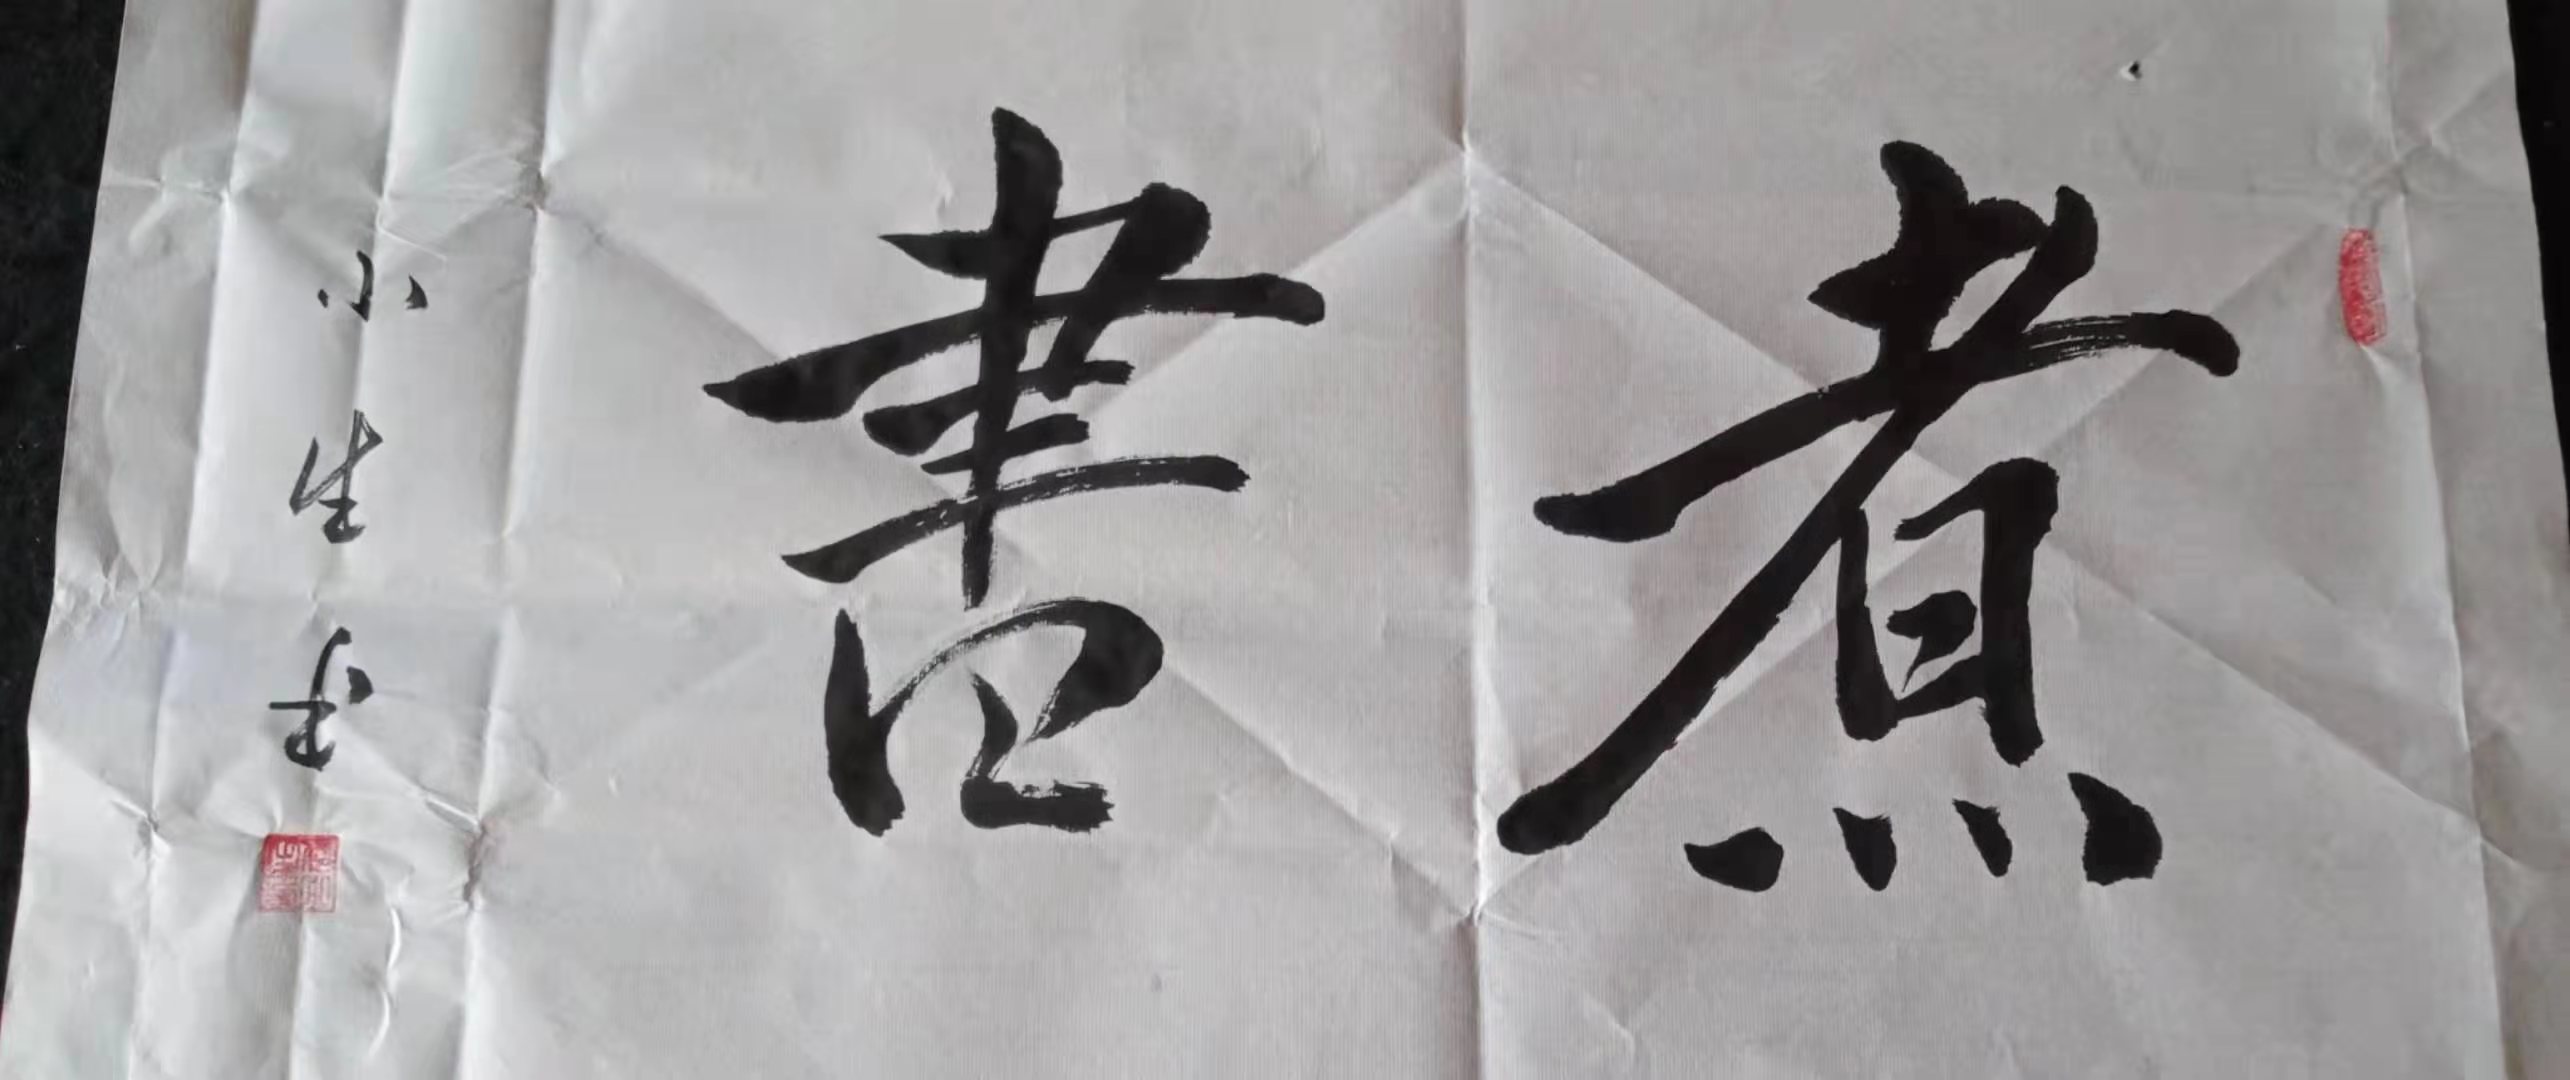 煮書
小生書